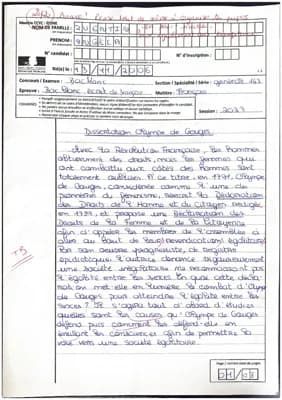 Modèle CCYC : ©DNE
NOM DE FAMILLE :
PRENOM :
N° candidat :
N° d'inscription :
Né(e) le :
Concours / Examen : Bac blanc
Section / Spécialité / Série : générale
Epreuve : Bac Blanc écrit de français
Matière : Français
Session : 2023
Dissertation Olympe de Gouges
Avec la Révolution Française, les hommes
obtiennent des droits, mais les femmes qui
ont combattu aux côtés des hommes sont
totalement oubliées. A ce titre, en 1791, Olympe
de Gouges, considérée comme l'une des
pionnières du féminisme, réécrit la Déclaration
des Droits de l'Homme et du Citoyen rédigée
en 1789, et propose une Déclaration des
Droits de la Femme et de la Citoyenne
afin d'appeler les membres de l'assemblée à
aller au bout de leurs revendications égalitaires.
Par son oeuvre de registre
épidictique, l'autrice dénonce vigoureusement
une société inégalitaire ne reconnaissant pas
l'égalité entre les sexes. En quoi cette décla-
ration met-elle en lumière le combat d'Olympe
de Gouges pour atteindre l'égalité entre les
sexes ? Il s'agira tout d'abord d'étudier
quelles sont les causes qu'Olympe de Gouges
défend puis comment les défend-elle en
éveillant les consciences afin de permettre la
voie vers une société égalitaire.
TB
01 / 08